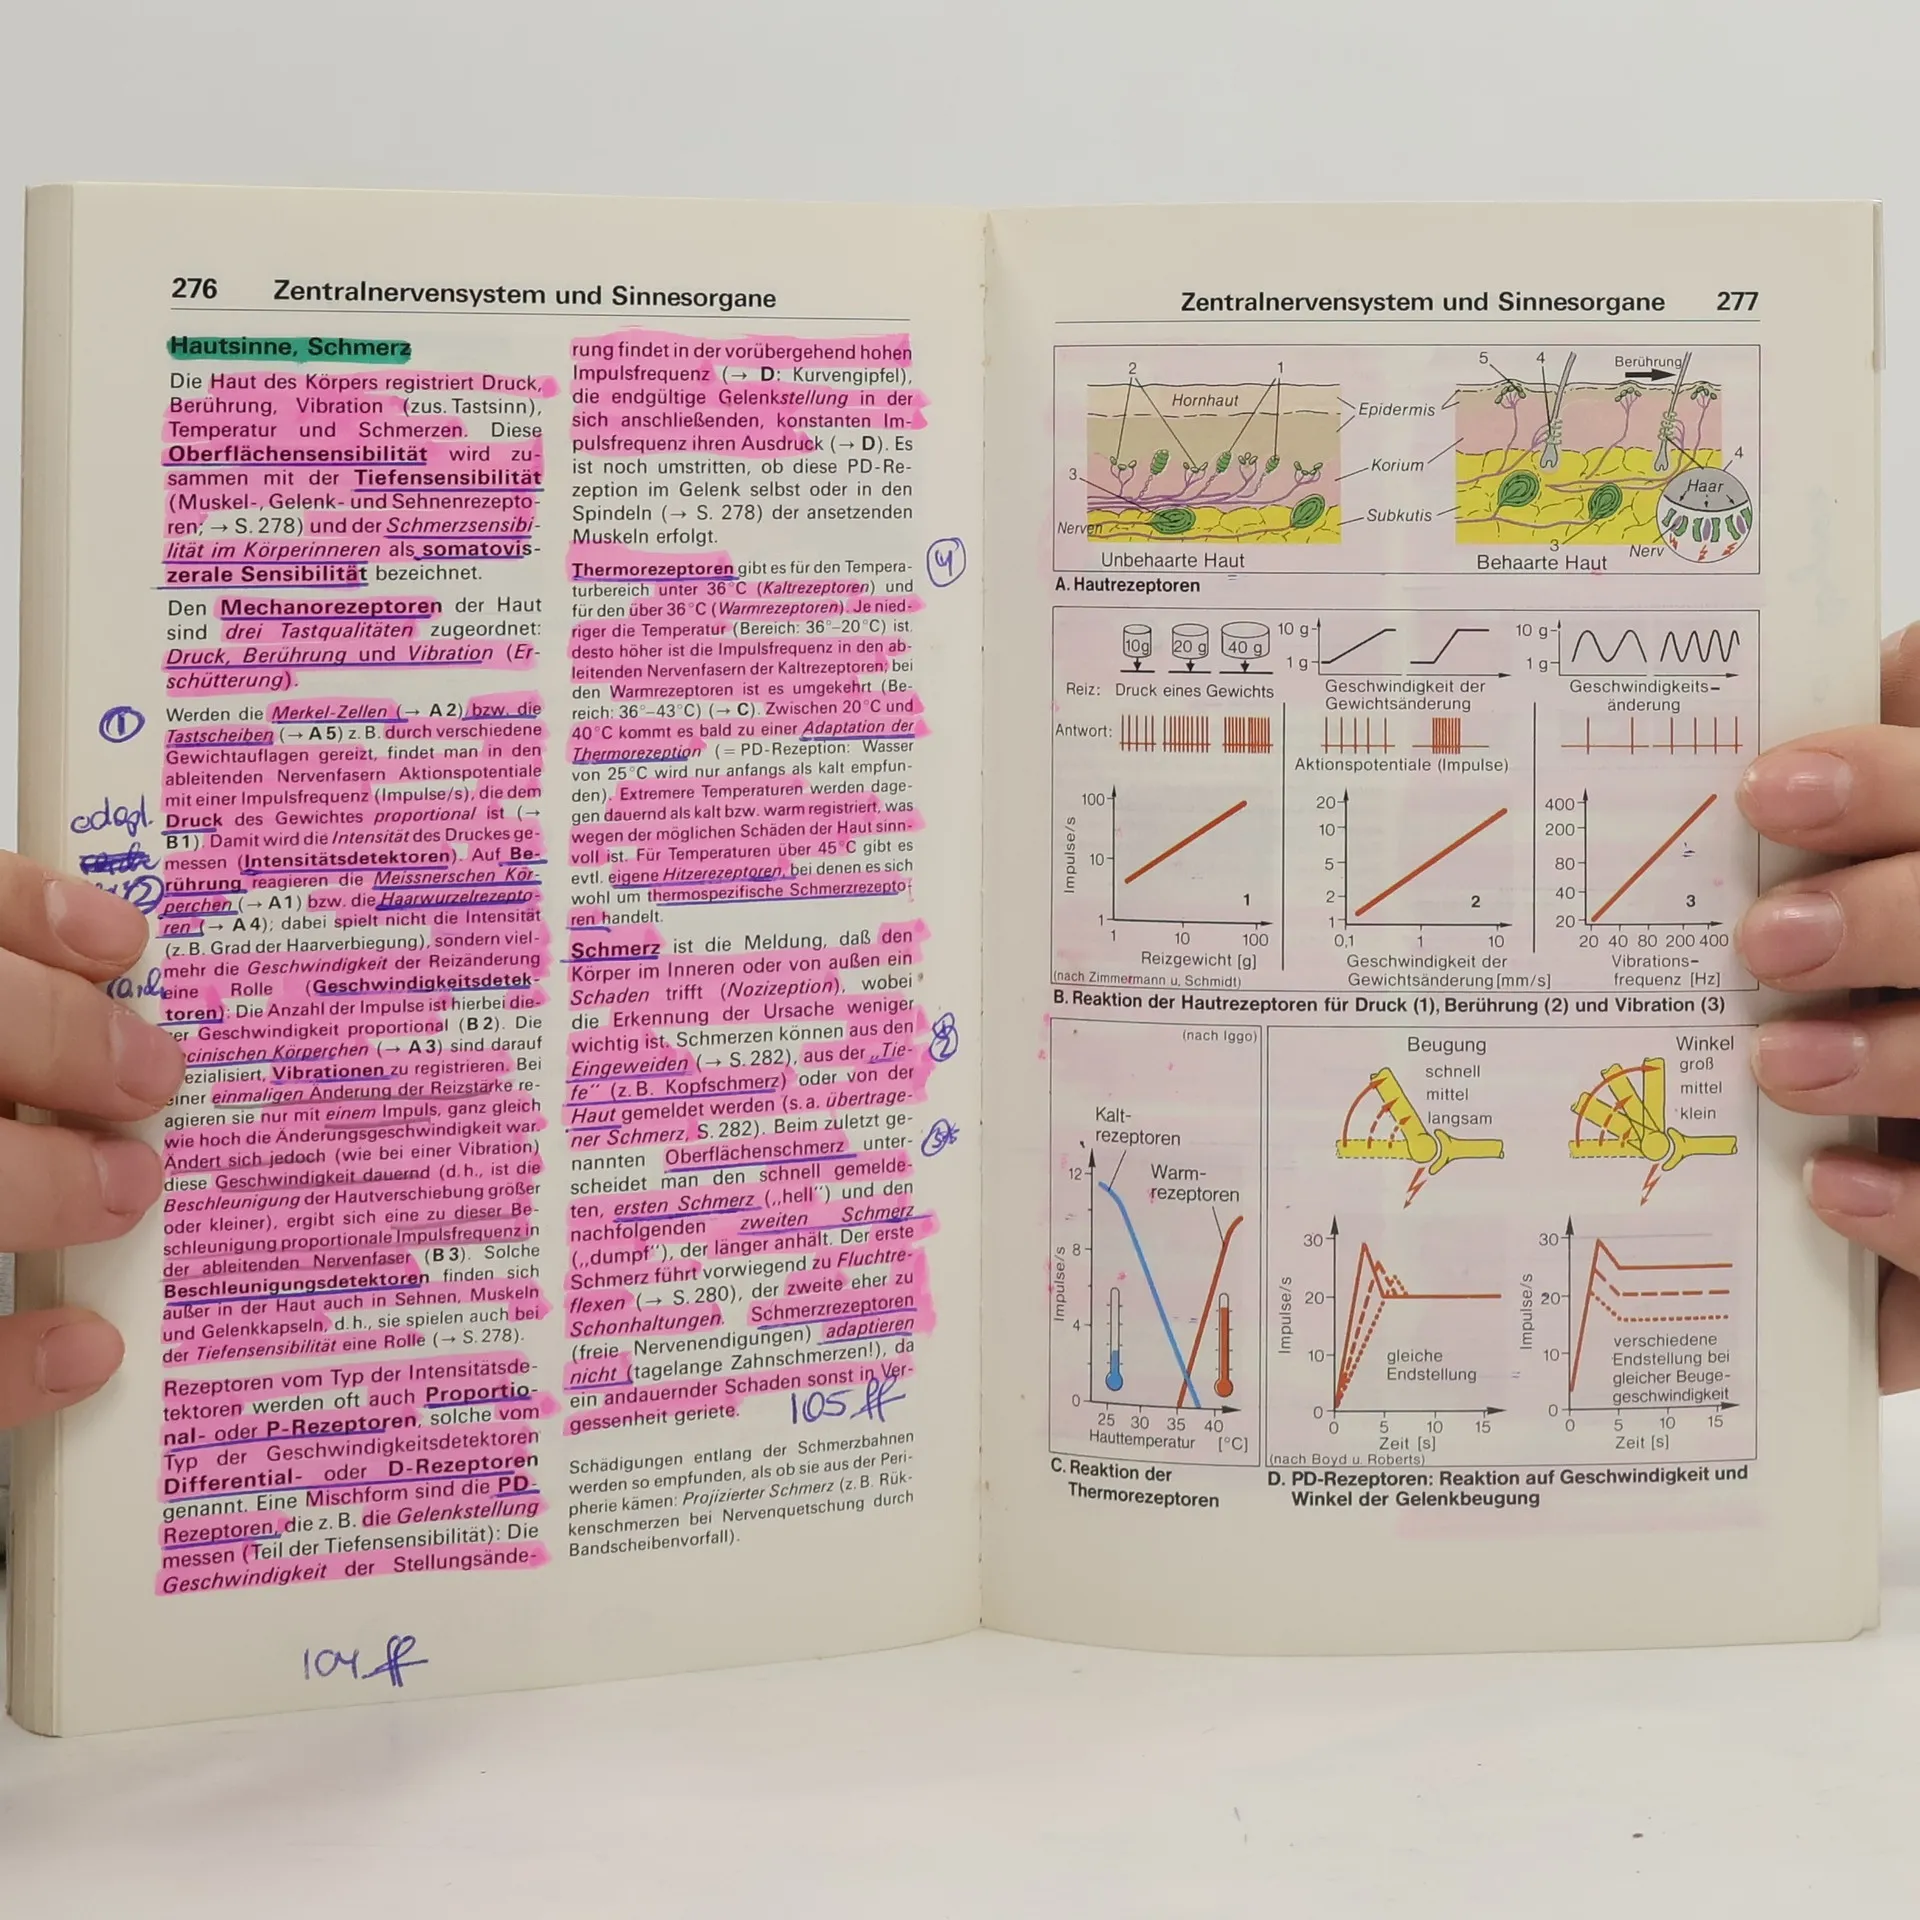 276 Zentralnervensystem und Sinnesorgane
Hautsinne, Schmerz
Die Haut des Körpers registriert Druck,
Berührung, Vibration (zus. Tastsinn),
Temperatur und Schmerzen. Diese
Oberflächensensibilität wird zu-
sammen mit der Tiefensensibilität
(Muskel-, Gelenk- und Sehnenrezepto-
ren; → S. 278) und der Schmerzsensibi-
lität im Körperinneren als somatovis-
zerale Sensibilität bezeichnet.
Den Mechanorezeptoren der Haut
sind drei Tastqualitäten zugeordnet:
Druck, Berührung und Vibration (Er-
schütterung).
1
Werden die Merkel-Zellen (→ A 2) bzw. die
Tastscheiben (→ A 5) z. B. durch verschiedene
Gewichtauflagen gereizt, findet man in den
ableitenden Nervenfasern Aktionspotentiale
mit einer Impulsfrequenz (Impulse/s), die dem
Druck des Gewichtes proportional ist (→
B 1). Damit wird die Intensität des Druckes ge-
messen (Intensitätsdetektoren). Auf Be-
rührung reagieren die Meissnerschen Kör-
perchen (→ A 1) bzw. die Haarwurzelrezepto-
ren (→ A 4); dabei spielt nicht die Intensität
(z. B. Grad der Haarverbiegung), sondern viel-
mehr die Geschwindigkeit der Reizänderung
eine Rolle (Geschwindigkeitsdetek-
toren): Die Anzahl der Impulse ist hierbei die-
er Geschwindigkeit proportional (B 2). Die
cinischen Körperchen (→ A 3) sind darauf
ezialisiert, Vibrationen zu registrieren. Bei
einer einmaligen Änderung der Reizstärke re-
agieren sie nur mit einem Impuls, ganz gleich
wie hoch die Änderungsgeschwindigkeit war.
Ändert sich jedoch (wie bei einer Vibration)
diese Geschwindigkeit dauernd (d. h., ist die
Beschleunigung der Hautverschiebung größer
oder kleiner), ergibt sich eine zu dieser Be-
schleunigung proportionale Impulsfrequenz in
der ableitenden Nervenfaser (B 3). Solche
Beschleunigungsdetektoren finden sich
außer in der Haut auch in Sehnen, Muskeln
und Gelenkkapseln, d. h., sie spielen auch bei
der Tiefensensibilität eine Rolle (→ S. 278).
Rezeptoren vom Typ der Intensitätsde-
tektoren werden oft auch Proportio-
nal- oder P-Rezeptoren, solche vom
Typ der Geschwindigkeitsdetektoren
Differential- oder D-Rezeptoren
genannt. Eine Mischform sind die PD-
Rezeptoren, die z. B. die Gelenkstellung
messen (Teil der Tiefensensibilität): Die
Geschwindigkeit der Stellungsände-
104 ff
rung findet in der vorübergehend hohen
Impulsfrequenz (→ D: Kurvengipfel),
die endgültige Gelenkstellung in der
sich anschließenden, konstanten Im-
pulsfrequenz ihren Ausdruck (→ D). Es
ist noch umstritten, ob diese PD-Re-
zeption im Gelenk selbst oder in den
Spindeln (→ S. 278) der ansetzenden
Muskeln erfolgt.
4
Thermorezeptoren gibt es für den Tempera-
turbereich unter 36°C (Kaltrezeptoren) und
für den über 36°C (Warmrezeptoren). Je nied-
riger die Temperatur (Bereich: 36°–20°C) ist,
desto höher ist die Impulsfrequenz in den ab-
leitenden Nervenfasern der Kaltrezeptoren; bei
den Warmrezeptoren ist es umgekehrt (Be-
reich: 36°–43°C) (→ C). Zwischen 20°C und
40°C kommt es bald zu einer Adaptation der
Thermorezeption (= PD-Rezeption: Wasser
von 25°C wird nur anfangs als kalt empfun-
den). Extreme Temperaturen werden dage-
gen dauernd als kalt bzw. warm registriert, was
wegen der möglichen Schäden der Haut sinn-
voll ist. Für Temperaturen über 45°C gibt es
evtl. eigene Hitzerezeptoren, bei denen es sich
wohl um thermospezifische Schmerzrezepto-
ren handelt.
Schmerz ist die Meldung, daß den
Körper im Inneren oder von außen ein
Schaden trifft (Nozizeption), wobei
die Erkennung der Ursache weniger
wichtig ist. Schmerzen können aus den
Eingeweiden (→ S. 282), aus der „Tie-
fe“ (z. B. Kopfschmerz) oder von der
Haut gemeldet werden (s. a. übertrage-
ner Schmerz, S. 282). Beim zuletzt ge-
nannten Oberflächenschmerz unter-
scheidet man den schnell gemelde-
ten, ersten Schmerz („hell“) und den
nachfolgenden zweiten Schmerz
(„dumpf“), der länger anhält. Der erste
Schmerz führt vorwiegend zu Fluchtre-
flexen (→ S. 280), der zweite eher zu
Schonhaltungen. Schmerzrezeptoren
(freie Nervenendigungen) adaptieren
nicht (tagelange Zahnschmerzen!), da
ein andauernder Schaden sonst in Ver-
gessenheit geriete.
105 ff
Schädigungen entlang der Schmerzbahnen
werden so empfunden, als ob sie aus der Peri-
pherie kämen: Projizierter Schmerz (z. B. Rük-
kenschmerzen bei Nervenquetschung durch
Bandscheibenvorfall).
Zentralnervensystem und Sinnesorgane 277
2 1 5 4 Berührung
Hornhaut
Epidermis
Korium
3 4
Haar
Subkutis
Nerven
3 Nerv
Unbehaarte Haut Behaarte Haut
A. Hautrezeptoren
10g 20 g 40 g
10 g
1 g
10 g
1 g
Reiz: Druck eines Gewichts
Geschwindigkeit der
Gewichtsänderung
Geschwindigkeits-
änderung
Antwort:
Aktionspotentiale (Impulse)
Impulse/s
100
10
1
1
1 10 100
Reizgewicht [g]
(nach Zimmermann u. Schmidt)
20
10
5
2
1
2
0,1 1 10
Geschwindigkeit der
Gewichtsänderung [mm/s]
400
200
80
40
20
3
20 40 80 200 400
Vibrations-
frequenz [Hz]
B. Reaktion der Hautrezeptoren für Druck (1), Berührung (2) und Vibration (3)
(nach Iggo)
Kalt-
rezeptoren
Warm-
rezeptoren
Impulse/s
12
8
4
0
25 30 35 40
Hauttemperatur [°C]
C. Reaktion der
Thermorezeptoren
Beugung
schnell
mittel
langsam
Winkel
groß
mittel
klein
Impulse/s
30
20
10
0
gleiche
Endstellung
0 5 10 15
Zeit [s]
(nach Boyd u. Roberts)
Impulse/s
30
20
10
0
verschiedene
Endstellung bei
gleicher Beuge-
geschwindigkeit
0 5 10 15
Zeit [s]
D. PD-Rezeptoren: Reaktion auf Geschwindigkeit und
Winkel der Gelenkbeugung